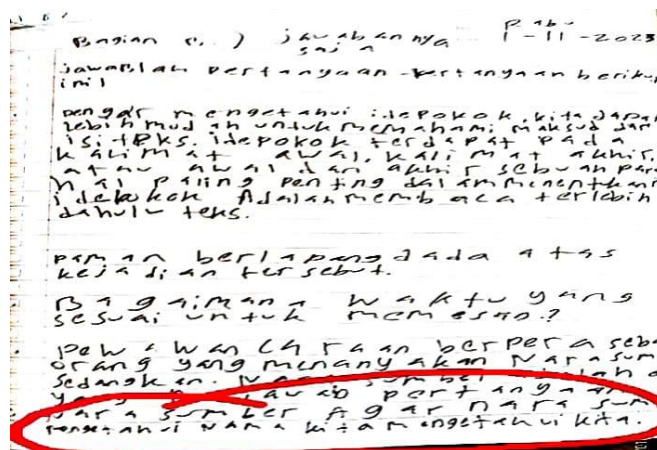 Bagian B.) jawabannya Rabu
saja 1-11-2023
jawablah pertanyaan-pertanyaan berikut
ini!
dengar mengetahui idepokok, kita dapat
lebih mudah untuk memahami maksud dar
isi teks. idepokok terdapat pada
kalimat awal, kalimat akhir,
atau awal dan akhir sebuah par
Hal paling penting dalam menentukan
idepokok Adalah membaca terlebih
dahulu teks.
paman berlapang dada atas
kejadian tersebut.
Bagaimana waktu yang
sesuai untuk
pewawancara berpera seba
orang yang menanyakan Narasum
sedangkan. Nara sumber
yang pertanyaan
Nara sumber Agar nara sum
mengetahui Nama kita mengetahui kita.